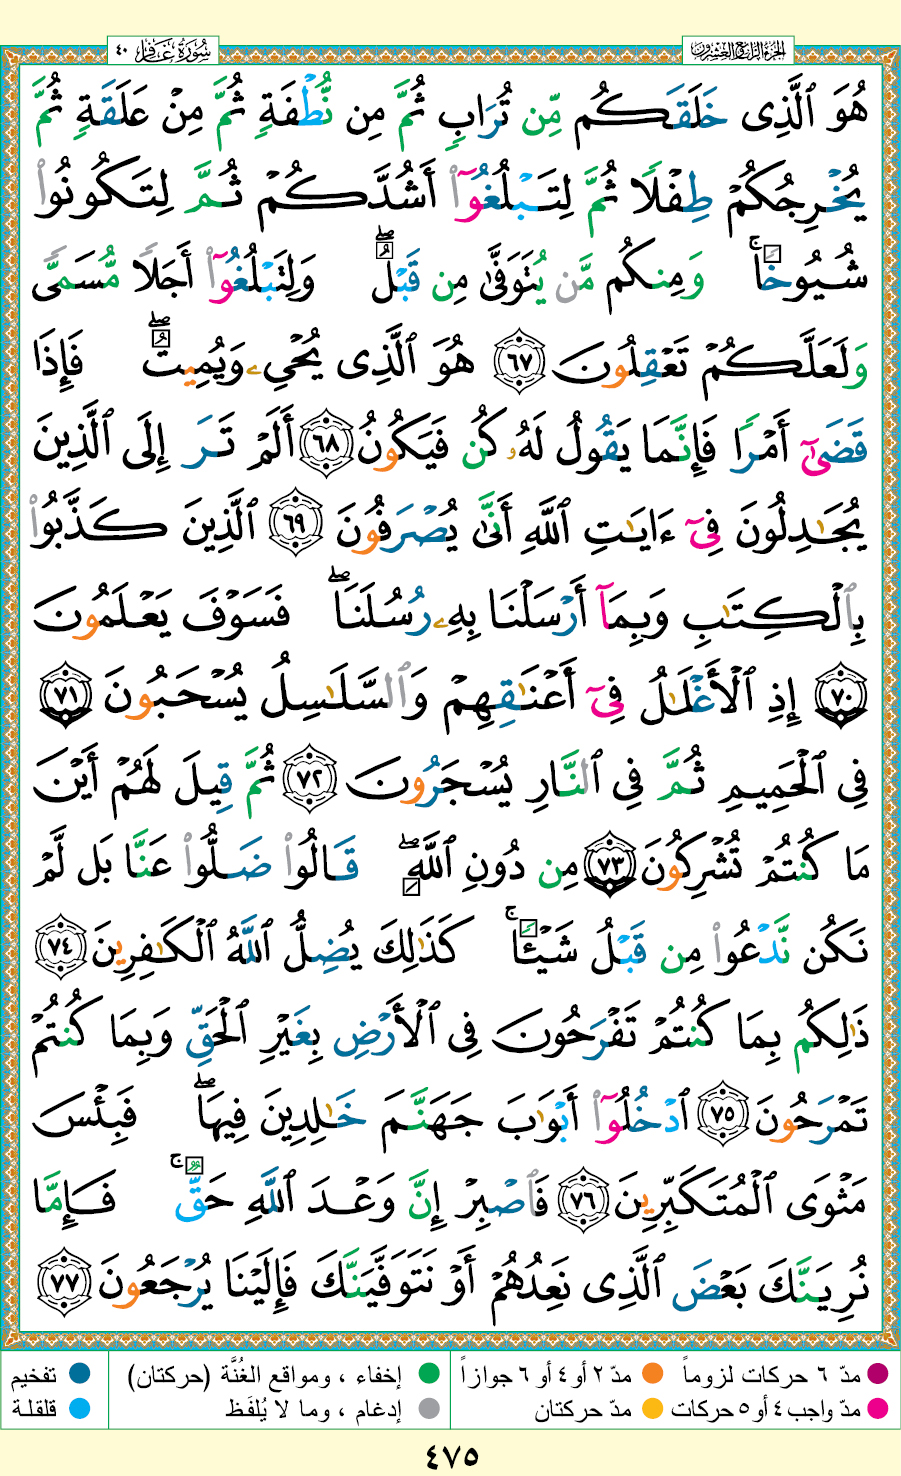 سُورَةُ غَافِر ٤٠
الجزء الرابع والعشرون
هُوَ ٱلَّذِى خَلَقَكُم مِّن تُرَابٍ ثُمَّ مِن نُّطْفَةٍ ثُمَّ مِنْ عَلَقَةٍ ثُمَّ
يُخْرِجُكُمْ طِفْلًا ثُمَّ لِتَبْلُغُوٓا۟ أَشُدَّكُمْ ثُمَّ لِتَكُونُوا۟
شُيُوخًا ۚ وَمِنكُم مَّن يُتَوَفَّىٰ مِن قَبْلُ ۖ وَلِتَبْلُغُوٓا۟ أَجَلًا مُّسَمًّى
وَلَعَلَّكُمْ تَعْقِلُونَ ٦٧ هُوَ ٱلَّذِى يُحْىِۦ وَيُمِيتُ ۖ فَإِذَا
قَضَىٰٓ أَمْرًا فَإِنَّمَا يَقُولُ لَهُۥ كُن فَيَكُونُ ٦٨ أَلَمْ تَرَ إِلَى ٱلَّذِينَ
يُجَٰدِلُونَ فِىٓ ءَايَٰتِ ٱللَّهِ أَنَّىٰ يُصْرَفُونَ ٦٩ ٱلَّذِينَ كَذَّبُوا۟
بِٱلْكِتَٰبِ وَبِمَآ أَرْسَلْنَا بِهِۦ رُسُلَنَا ۖ فَسَوْفَ يَعْلَمُونَ
٧٠ إِذِ ٱلْأَغْلَٰلُ فِىٓ أَعْنَٰقِهِمْ وَٱلسَّلَٰسِلُ يُسْحَبُونَ ٧١
فِى ٱلْحَمِيمِ ثُمَّ فِى ٱلنَّارِ يُسْجَرُونَ ٧٢ ثُمَّ قِيلَ لَهُمْ أَيْنَ
مَا كُنتُمْ تُشْرِكُونَ ٧٣ مِن دُونِ ٱللَّهِ ۖ قَالُوا۟ ضَلُّوا۟ عَنَّا بَل لَّمْ
نَكُن نَّدْعُوا۟ مِن قَبْلُ شَيْـًٔا ۚ كَذَٰلِكَ يُضِلُّ ٱللَّهُ ٱلْكَٰفِرِينَ ٧٤
ذَٰلِكُم بِمَا كُنتُمْ تَفْرَحُونَ فِى ٱلْأَرْضِ بِغَيْرِ ٱلْحَقِّ وَبِمَا كُنتُمْ
تَمْرَحُونَ ٧٥ ٱدْخُلُوٓا۟ أَبْوَٰبَ جَهَنَّمَ خَٰلِدِينَ فِيهَا ۖ فَبِئْسَ
مَثْوَى ٱلْمُتَكَبِّرِينَ ٧٦ فَٱصْبِرْ إِنَّ وَعْدَ ٱللَّهِ حَقٌّ ۚ فَإِمَّا
نُرِيَنَّكَ بَعْضَ ٱلَّذِى نَعِدُهُمْ أَوْ نَتَوَفَّيَنَّكَ فَإِلَيْنَا يُرْجَعُونَ ٧٧
مدّ ٦ حركات لزوماً مدّ ٢ أو ٤ أو ٦ جوازاً إخفاء ، ومواقع الغُنَّة (حركتان) تفخيم
مدّ واجب ٤ أو ٥ حركات مدّ حركتان إدغام ، وما لا يُلفَظ قلقلة
٤٧٥